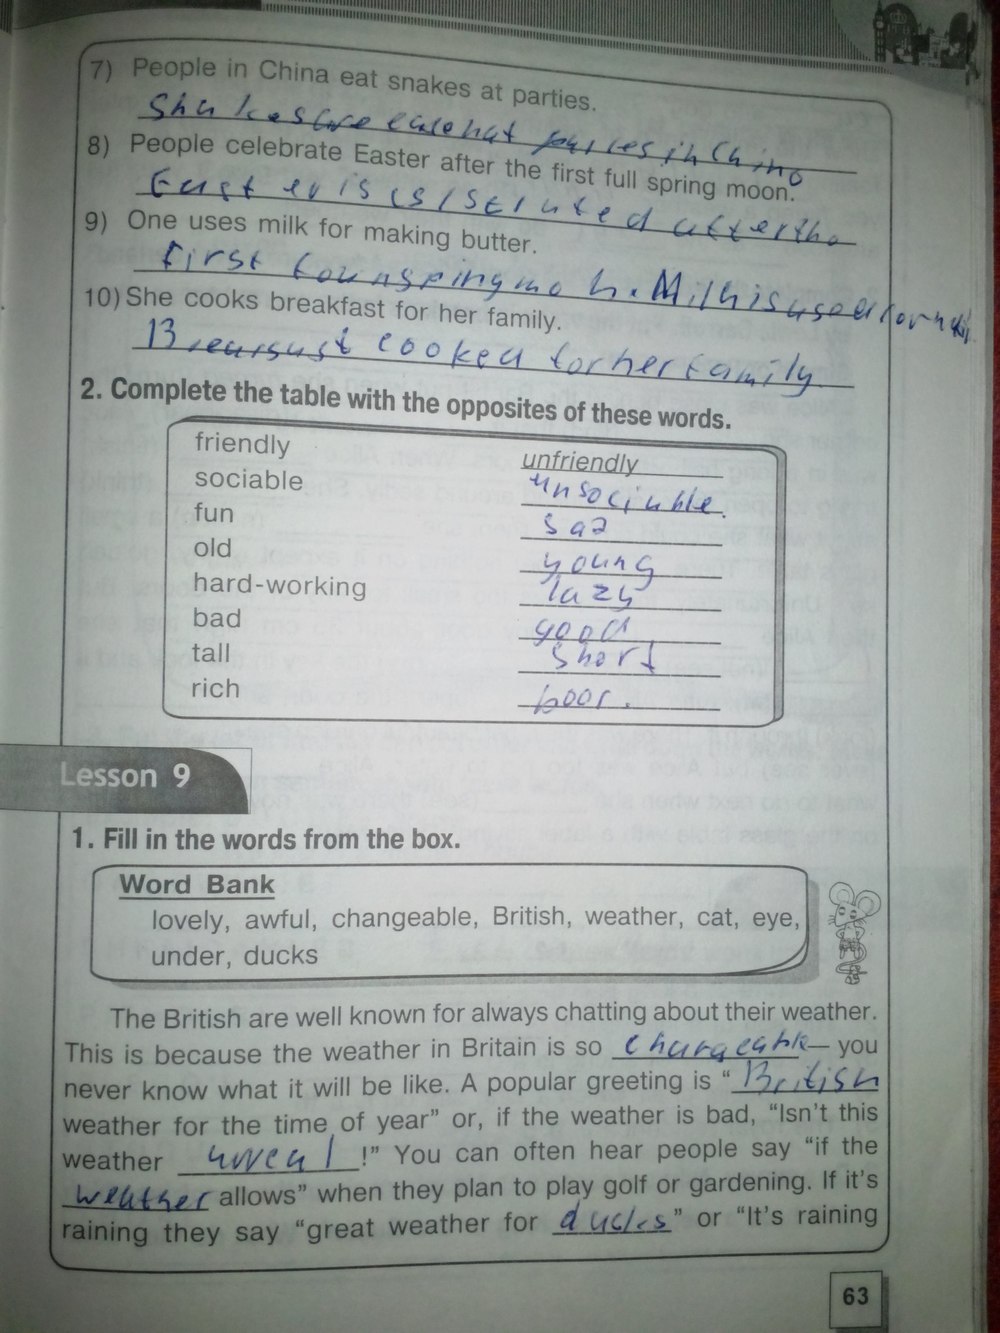 7) People in China eat snakes at parties.
8) People celebrate Easter after the first full spring moon.
9) One uses milk for making butter.
10) She cooks breakfast for her family.
cooked for her family
2. Complete the table with the opposites of these words.
friendly unfriendly
sociable unsociable.
fun
old young
hard-working lazy
bad good
tall short
rich poor.
Lesson 9
1. Fill in the words from the box.
Word Bank
lovely, awful, changeable, British, weather, cat, eye,
under, ducks
The British are well known for always chatting about their weather.
This is because the weather in Britain is so changeable – you
never know what it will be like. A popular greeting is “British
weather for the time of year” or, if the weather is bad, “Isn't this
weather !” You can often hear people say “if the
weather allows” when they plan to play golf or gardening. If it's
raining they say “great weather for ducks” or “It's raining
63